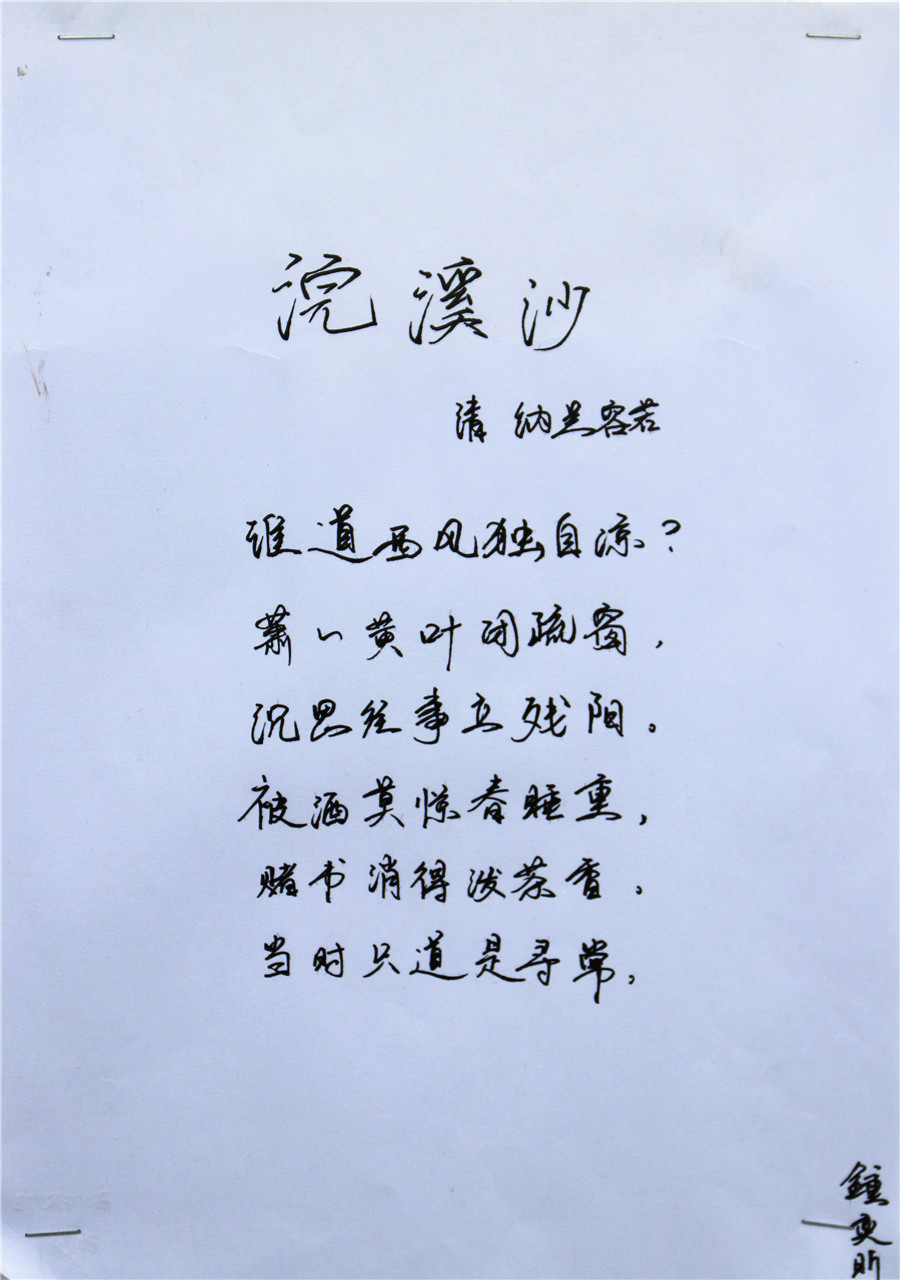 浣溪沙
清 纳兰容若
谁道西风独自凉?
萧々黄叶闭疏窗,
沉思往事立残阳。
被酒莫惊春睡重,
赌书消得泼茶香,
当时只道是寻常,
鍾奕昕